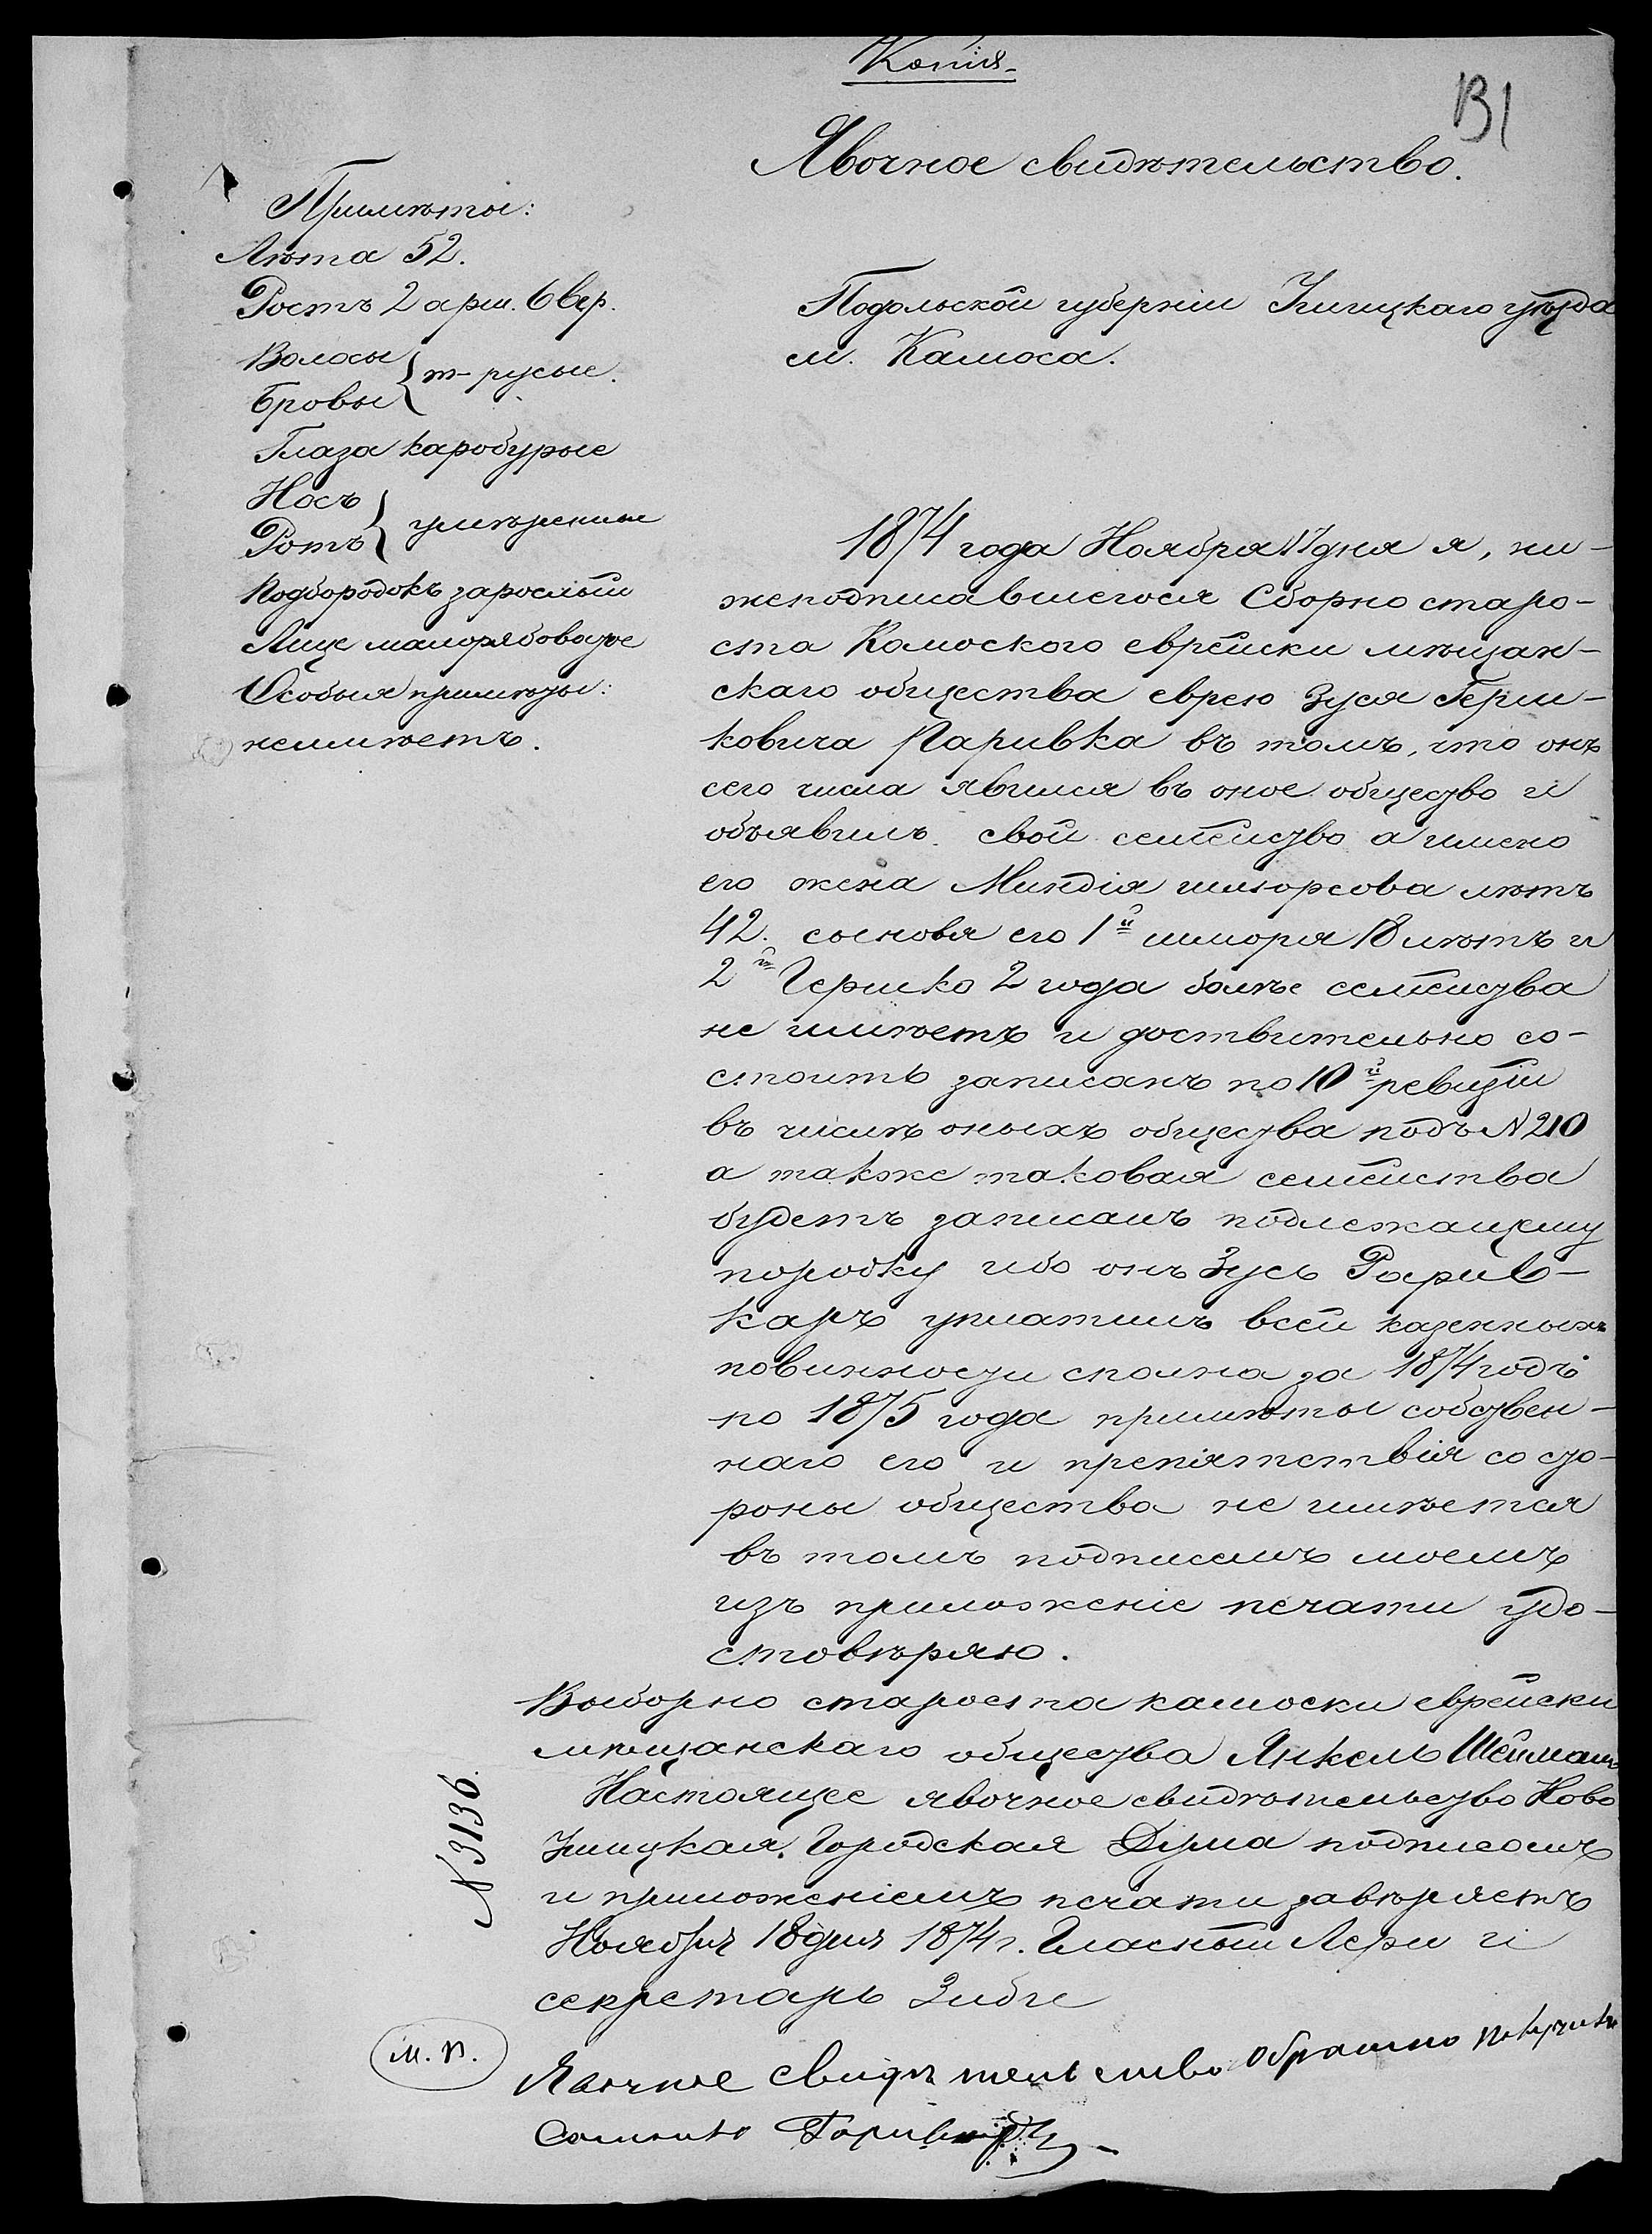 Копія
131
Явочное свидѣтельство.
Примѣты:
Лѣта 52.
Ростъ 2 арш. 6 вер.
Волосы
Бровы } т-русые.
Глаза каробурые
Носъ
Ротъ } умѣренные
Подбородокъ зарослый
Лице малорябоватое
Особыя примѣты:
неимѣетъ.
Подольской губерніи Ушицкаго уѣзда
м. Калюса.
1874 года Ноября 17 дня я, ни-
жеподписавшегося Сборно старо-
ста Калюского еврейски мѣщан-
скаго общества еврею Зуся Герш-
ковича Паривка въ томъ, что онъ
сего числа явился въ оное общество и
объявилъ свой семейство а имено
его жена Миндля лѣтъ
42. сыновя его 1й Шморя 18 лѣтъ и
2й Гершко 2 года болѣе семейства
не имѣетъ и доствительно со-
стоитъ записанъ по 10й ревизіи
въ числѣ оныхъ общества подъ N 210
а также таковая семейства
будетъ записанъ подлежащему
породку ибо онъ Зусь Парив-
каръ уплатилъ всей казенныхъ
повинности сполна за 1874 годъ
по 1875 года примѣты собствен-
наго его и препятствія со сто-
роны общества не имѣется
въ томъ подписемъ моемъ
изъ приложеніе печати удо-
стовѣряю.
Выборно староста калюски еврейски
мѣщанскаго общества Янкель Шейман
Настоящее явочное свидѣтельство Ново
Ушицкая Городская Дума подписомъ
и приложеніемъ печати завѣряетъ
Ноября 18 дня 1874 г. Гласный Лери и
секретарь Зибе
N 3136.
М. П.
Явочное свидѣтельство обратно получилъ